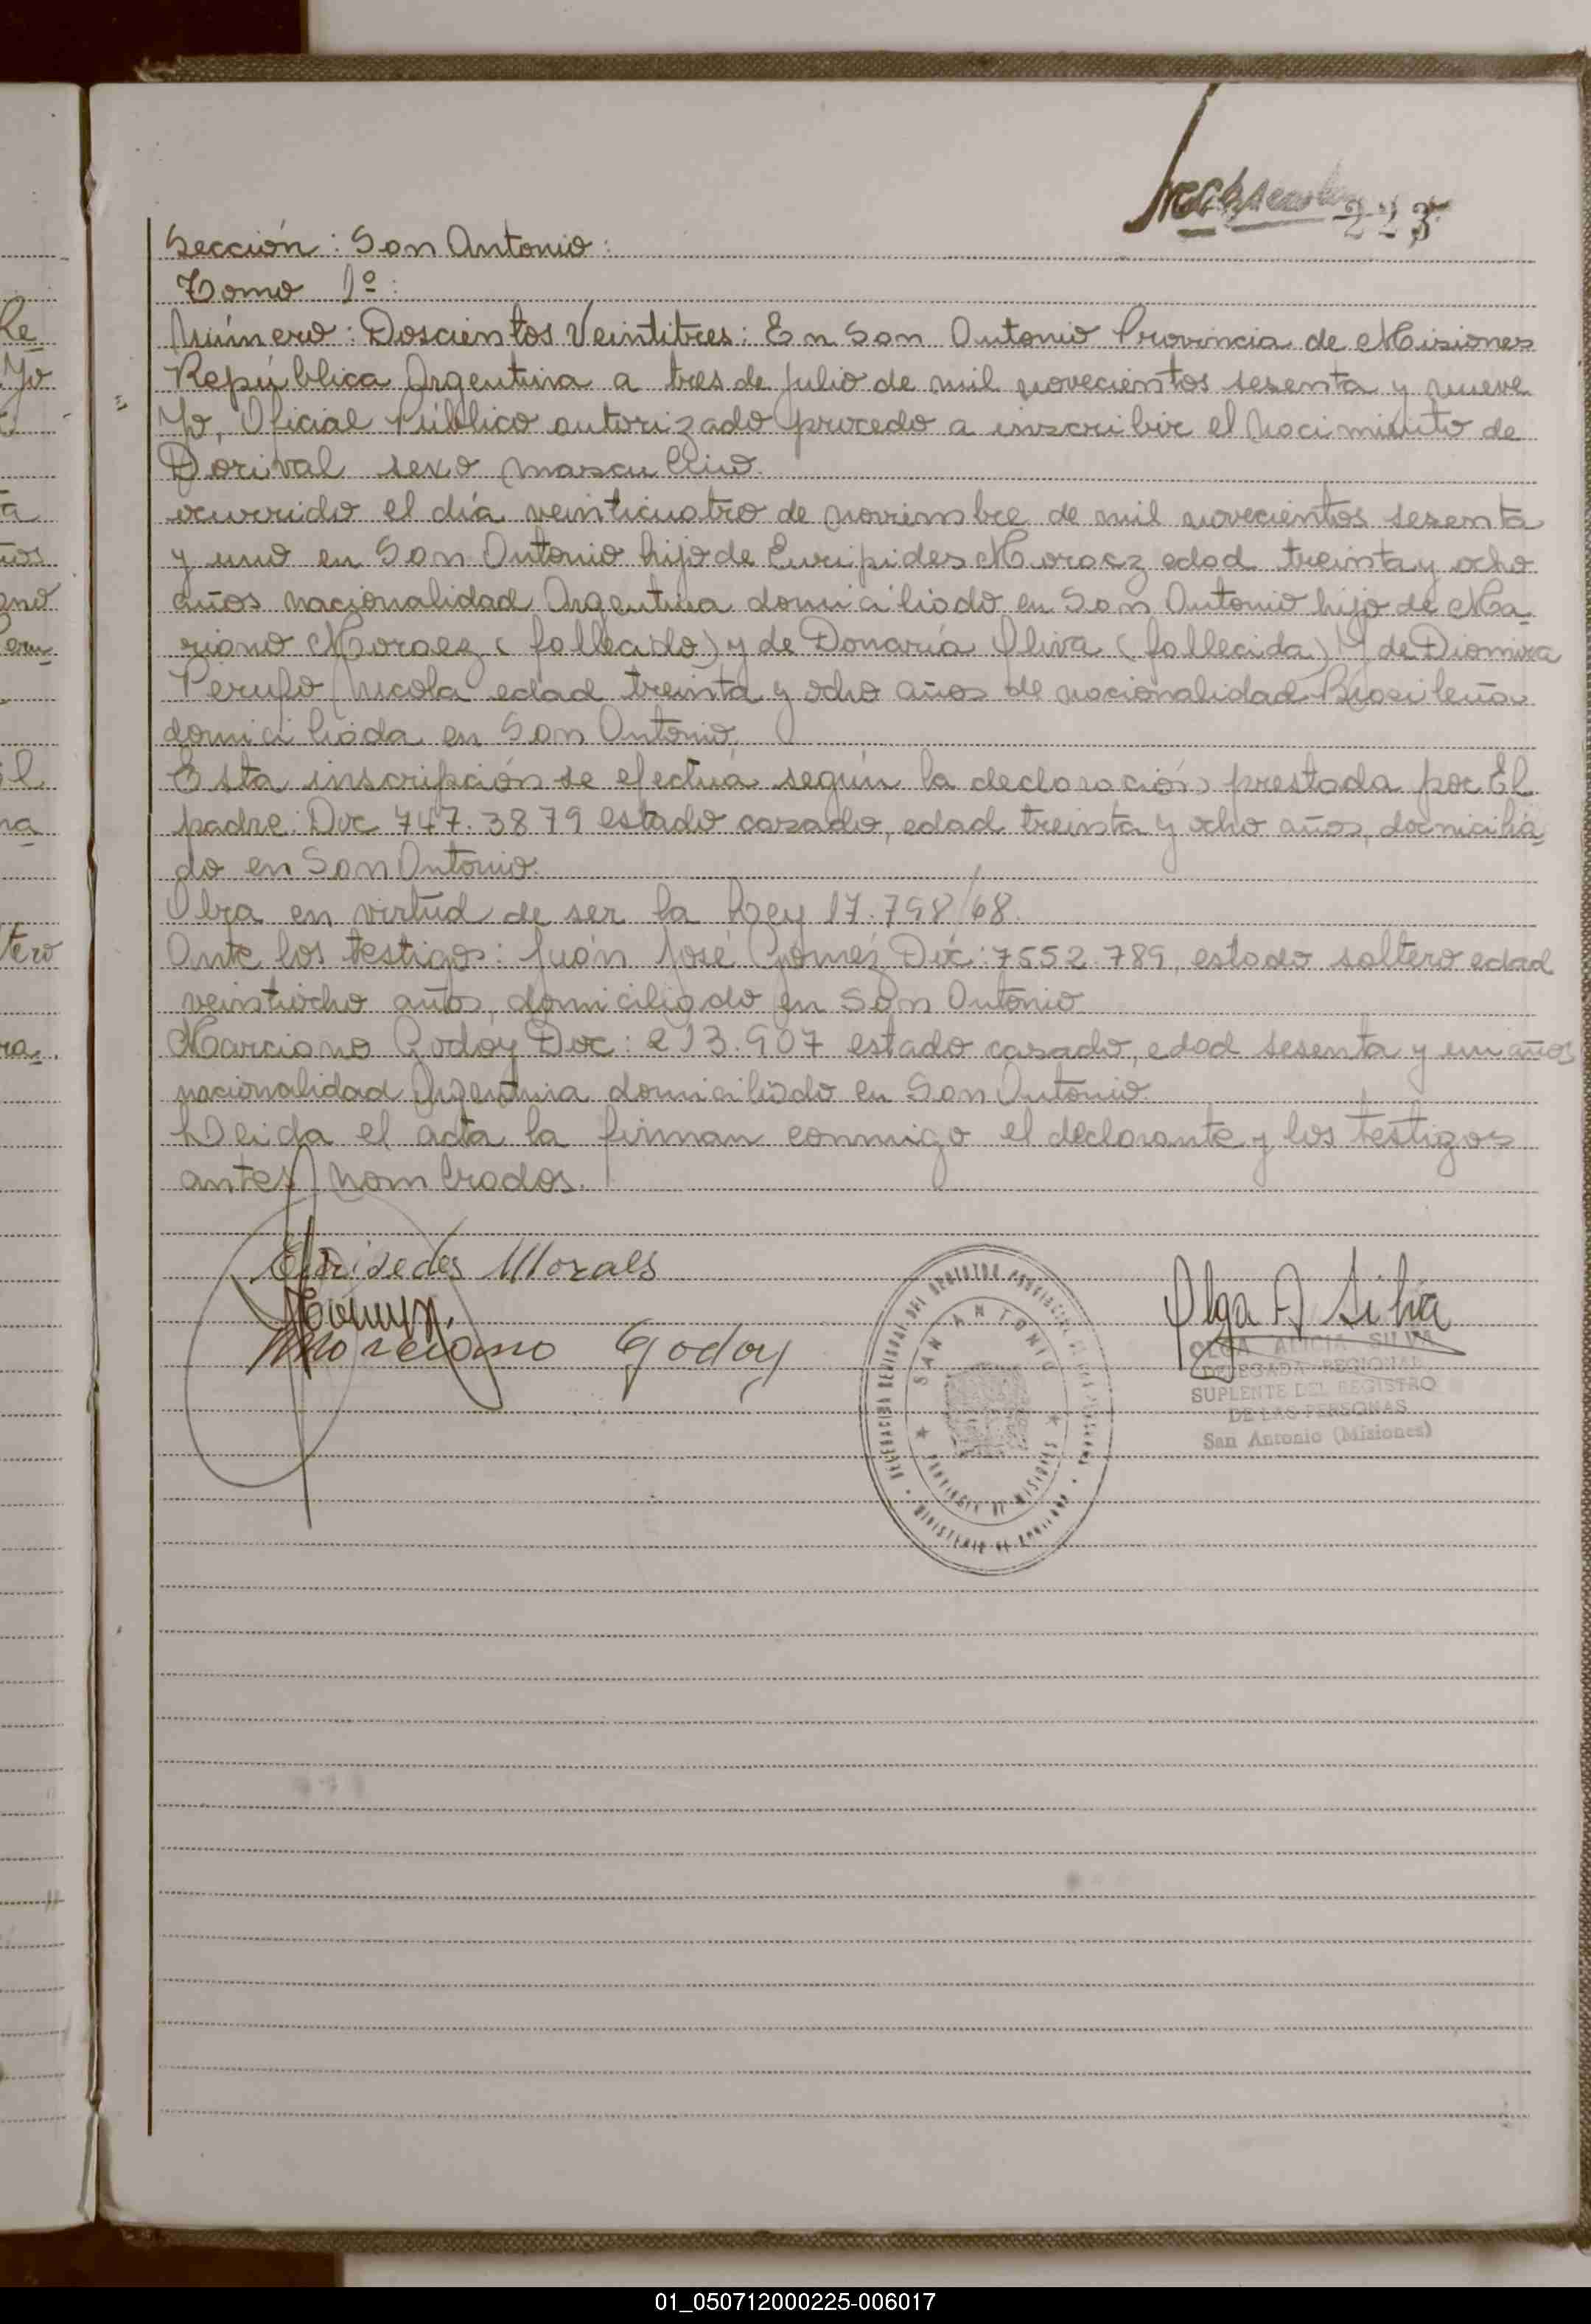 223
Sección: San Antonio:
Tomo 1º:
Número: Doscientos Veintitres: En San Antonio Provincia de Misiones
República Argentina a tres de Julio de mil novecientos sesenta y nueve
Yo, Oficial Público autorizado procedo a inscribir el Nacimiento de
Dorival sexo masculino.
ocurrido el día veinticuatro de noviembre de mil novecientos sesenta
y uno en San Antonio hijo de Euripides Moraez edad treinta y ocho
años nacionalidad Argentina domiciliado en San Antonio hijo de Ma-
riano Moraez (fallecido) y de Donaria Oliva (fallecida) Y de Diomira
Perufo Nicola edad treinta y ocho años de nacionalidad Brasileña
domiciliada en San Antonio.
Esta inscripción se efectúa según la declaración prestada por El
padre Doc 747.3879 estado casado, edad treinta y ocho años, domicilia-
do en San Antonio.
Obra en virtud de ser la Ley 17.798/68.
Ante los testigos: Juán José Gómez Doc: 7552.789, estado soltero edad
veintiocho años, domiciliado en San Antonio
Marciano Godoy Doc: 213.907 estado casado, edad sesenta y un años
nacionalidad Argentina domiciliado en San Antonio.
Leida el acta la firman conmigo el declarante y los testigos
antes nombrados.
Morales
Marciano Godoy
Olga A Silva
OLGA ALICIA SILVA
DELEGADA REGIONAL
SUPLENTE DEL REGISTRO
DE LAS PERSONAS
San Antonio (Misiones)
SAN ANTONIO
PROVINCIA DE MISIONES
01_050712000225-006017